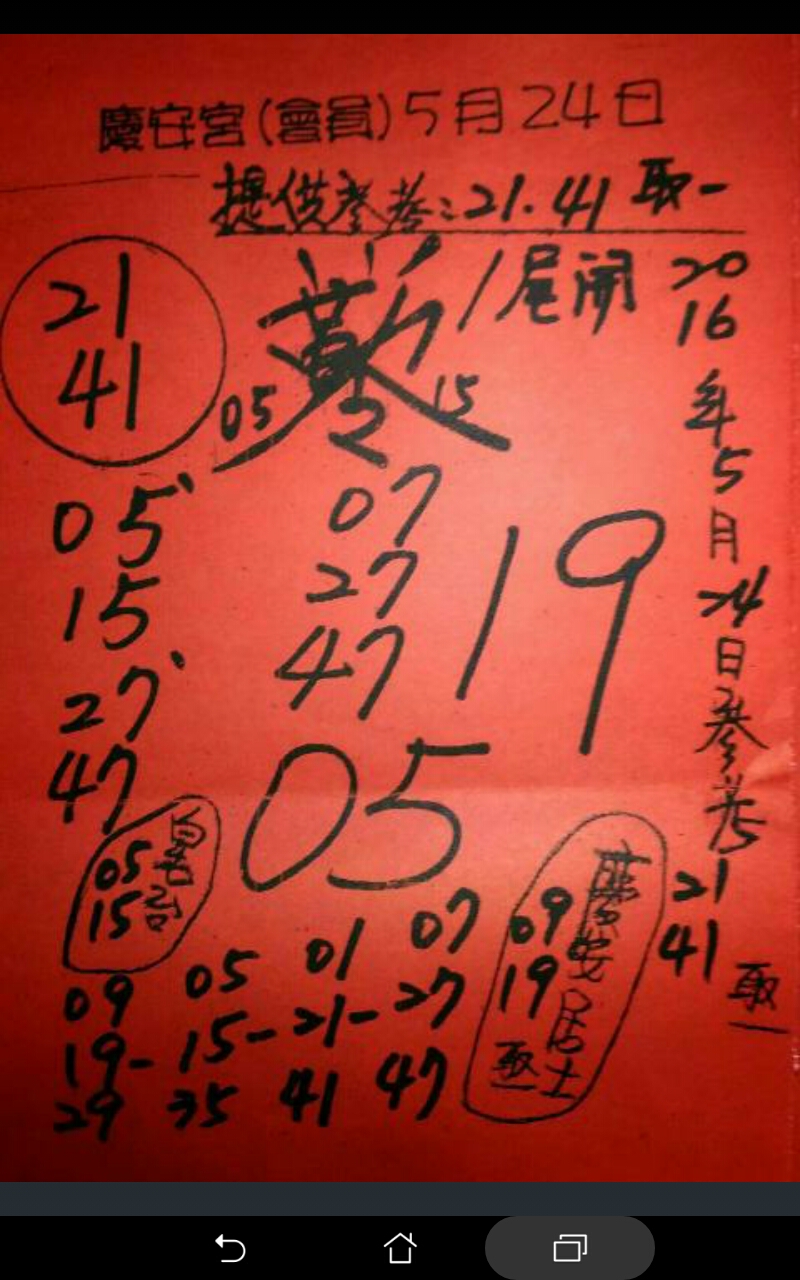 慶安宮(會員)5月24日
提供參考:21.41取一
21
41
1尾開
05 15
05
15
27
47
07
27
47
19
05
2016年5月24日參考
21
41
取一
05
15
09 05 01 07
19-15-21-27
29 35 41 47
慶安居士
09
19
取一